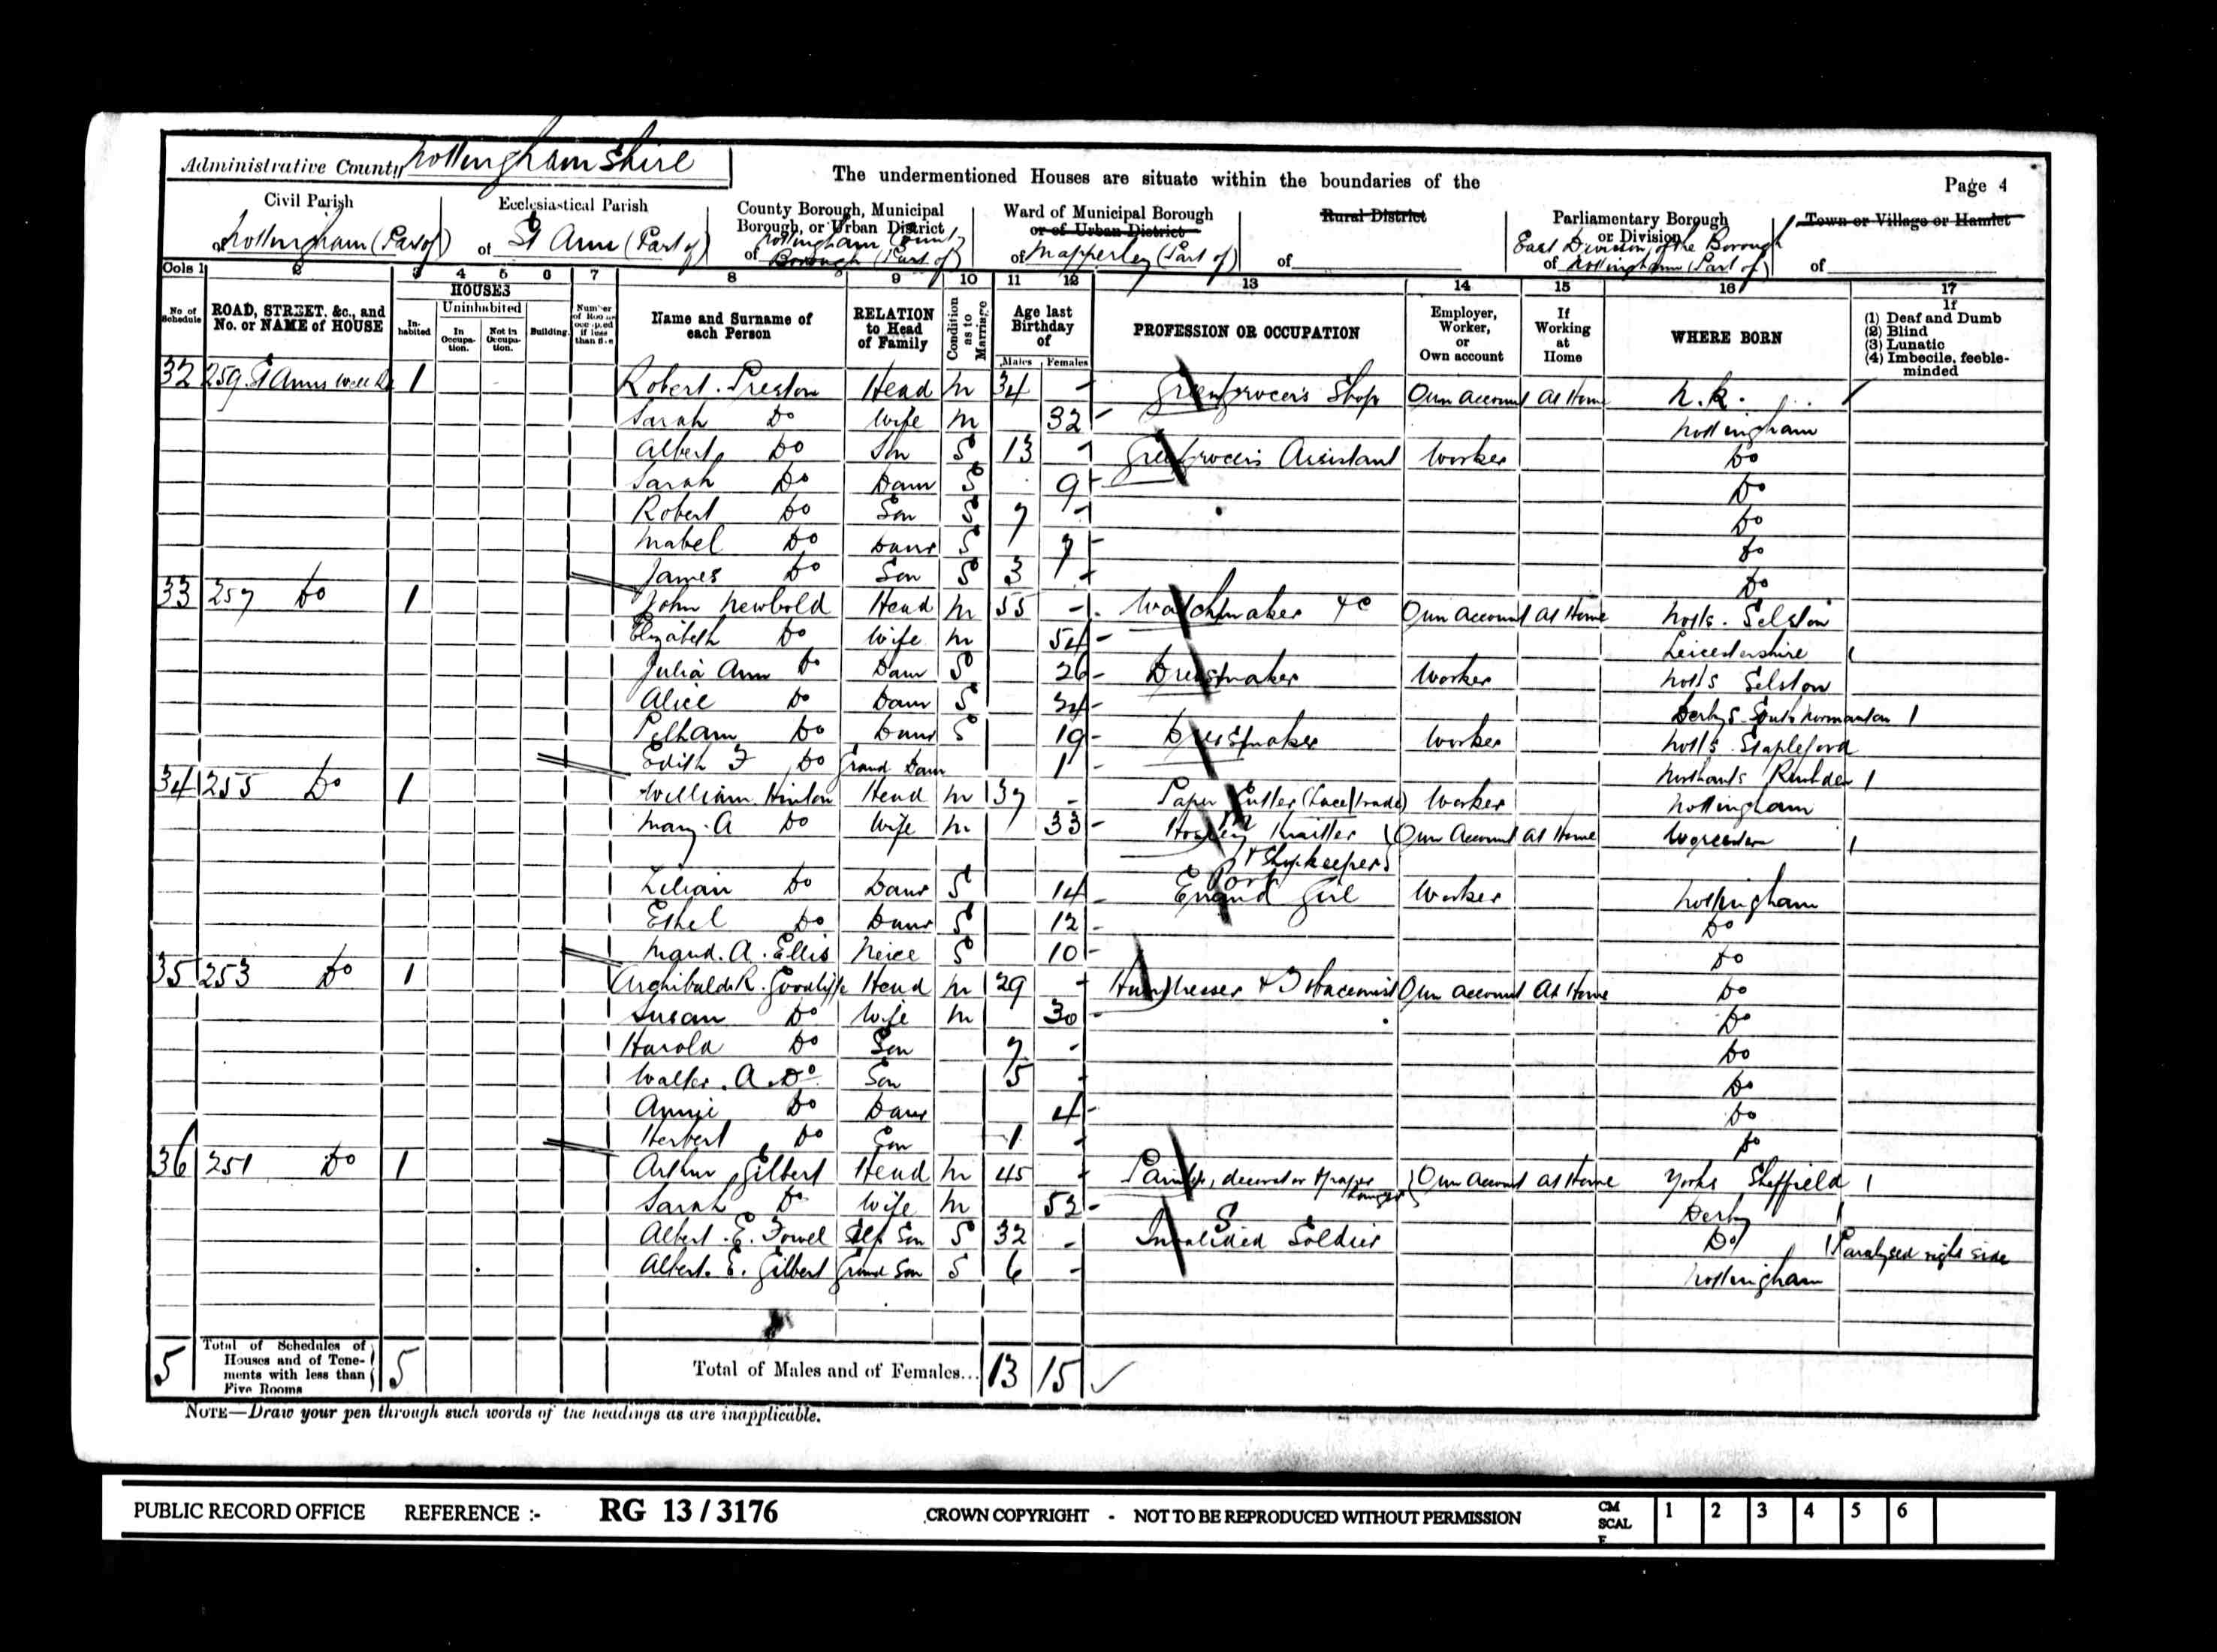 Administrative County Nottinghamshire
The undermentioned Houses are situate within the boundaries of the
Page 4
Civil Parish
of Nottingham (Part of)
Ecclesiastical Parish
of St Ann (Part of)
County Borough, Municipal
Borough, or Urban District
of Nottingham County
Borough (Part of)
Ward of Municipal Borough
or of Urban District
of Mapperley (Part of)
Rural District
of
Parliamentary Borough
or Division
East Division of the Borough
of Nottingham (Part of)
Town or Village or Hamlet
of
Cols 1 2 3 4 5 6 7 8 9 10 11 12 13 14 15 16 17
No of Schedule
ROAD, STREET, &c., and No. or NAME of HOUSE
HOUSES
In-habited
Uninhabited
In Occupa-tion.
Not in Occupa-tion.
Building.
Number of Rooms occupied if less than five
Name and Surname of each Person
RELATION to Head of Family
Condition as to Marriage
Age last Birthday of
Males Females
PROFESSION OR OCCUPATION
Employer, Worker, or Own account
If Working at Home
WHERE BORN
If
(1) Deaf and Dumb
(2) Blind
(3) Lunatic
(4) Imbecile, feeble-minded
32 259 St Anns Well Rd 1 Robert Preston Head M 34 - Greengrocers Shop Own account At Home N.K.
Sarah Do Wife M 32 - Nottingham
Albert Do Son S 13 - Greengrocers Assistant Worker Do
Sarah Do Daur S 9 - Do
Robert Do Son S 7 - Do
Mabel Do Daur S 7 - Do
James Do Son S 3 - Do
33 257 Do 1 John Newbold Head M 55 - Watchmaker &c Own Account At Home Notts. Selston
Elizabeth Do Wife M 54 - Leicestershire
Julia Ann Do Daur S 26 - Dressmaker Worker Notts Selston
Alice Do Daur S 24 - Derbys South Normanton
Pelham Do Daur S 19 - Dressmaker Worker Notts Stapleford
Edith F Do Grand Daur 1 - Northants Rushden
34 255 Do 1 William Hinton Head M 37 - Paper Cutter (Lace Trade) Worker Nottingham
Mary A Do Wife M 33 - Hosiery Knitter Own Account At Home Worcester
& Shopkeeper
Lilian Do Daur S 14 - Errand Girl Worker Nottingham
Ethel Do Daur S 12 - Do
Maud. A. Ellis Neice S 10 - Do
35 253 Do 1 Archibald R. Goodliffe Head M 29 - Hairdresser & Tobacconist Own account At Home Do
Susan Do Wife M 30 - Do
Harold Do Son 7 - Do
Walter. A. Do Son 5 - Do
Annie Do Daur 4 - Do
Herbert Do Son 1 - Do
36 251 Do 1 Arthur Gilbert Head M 45 - Painter, decorator & paper hanger Own Account At Home Yorks Sheffield
Sarah Do Wife M 52 - Derby
Albert. E. Fowel Step Son S 32 - Invalided Soldier Do Paralysed right side
Albert. E. Gilbert Grand Son S 6 - Nottingham
5 Total of Schedules of Houses and of Tene-ments with less than Five Rooms 5 Total of Males and of Females... 13 15
NOTE—Draw your pen through such words of the headings as are inapplicable.
PUBLIC RECORD OFFICE REFERENCE :- RG 13 / 3176 CROWN COPYRIGHT - NOT TO BE REPRODUCED WITHOUT PERMISSION CM SCALE 1 2 3 4 5 6